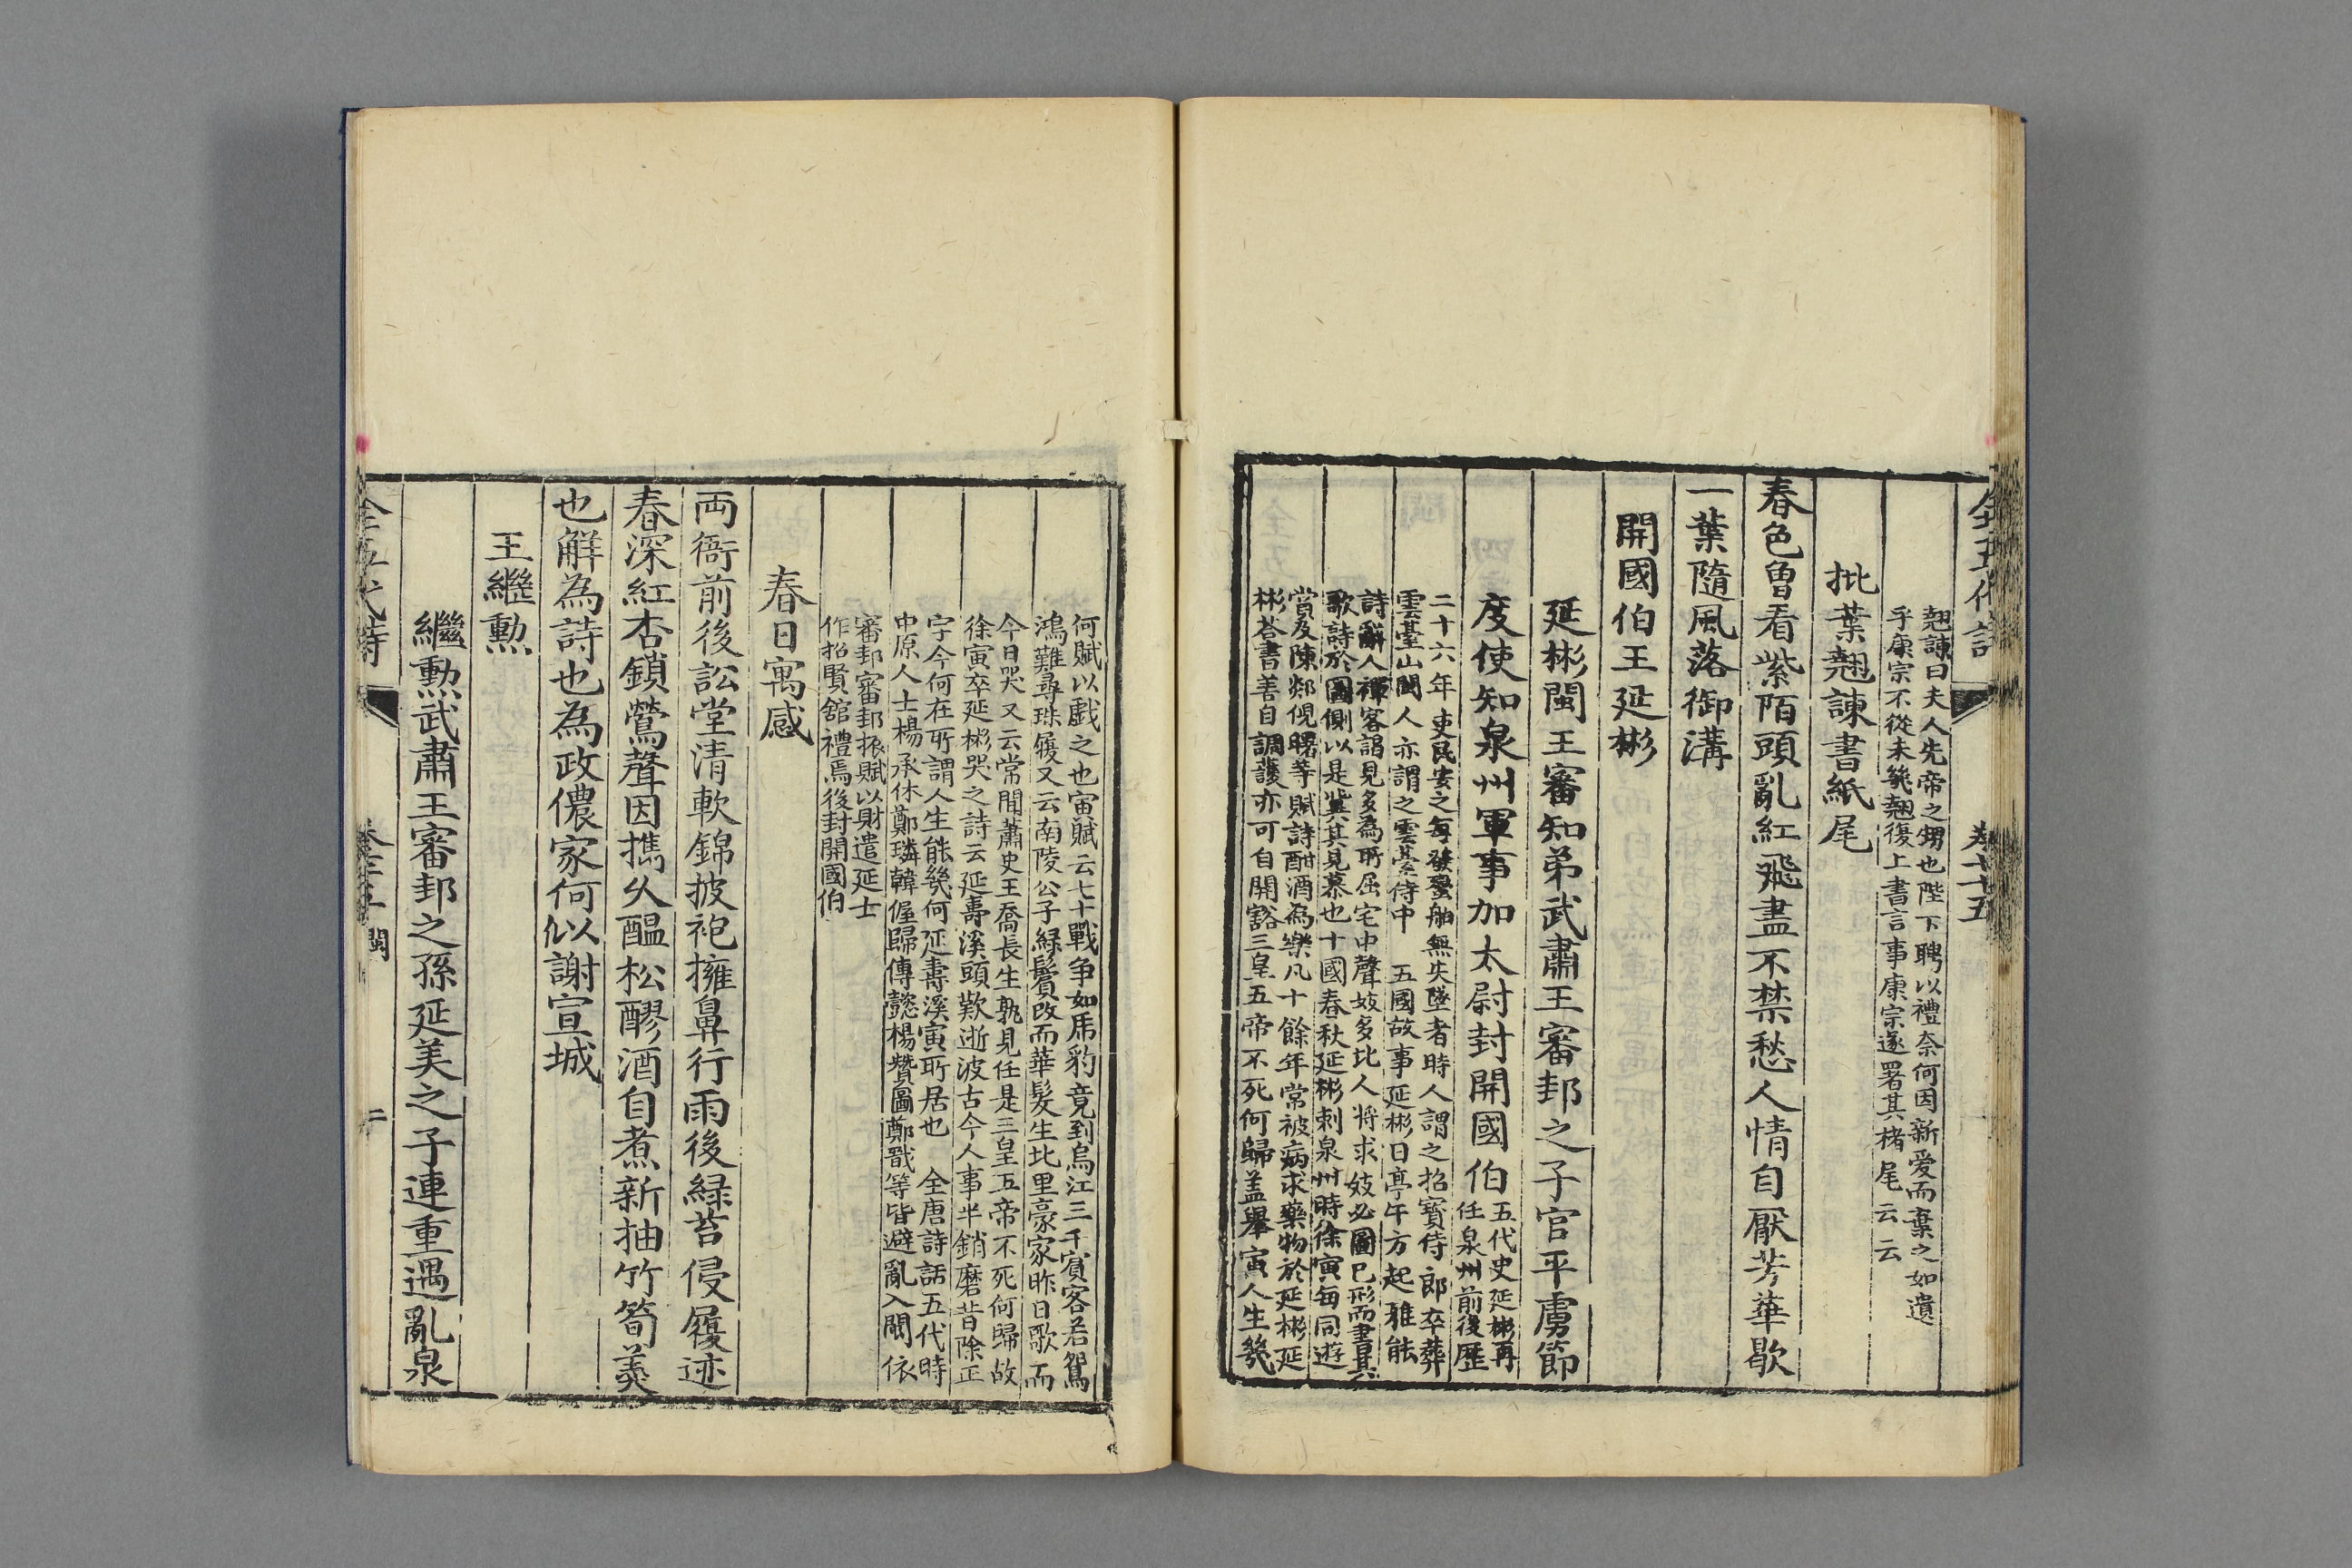 全五代詩
卷七十五
翹諫曰夫人先帝之甥也陛下聘以禮奈何因新爱而棄之如遺
乎康宗不從未幾翹復上書言事康宗遂署其楮尾云云
批葉翹諫書紙尾
春色曾看紫陌頭亂紅飛盡不禁愁人情自厭芳華歇
一葉隨風落御溝
開國伯王延彬
延彬閩王審知弟武肅王審邽之子官平虜節
度使知泉州軍事加太尉封開國伯
五代史延彬再
任泉州前後歷
二十六年吏民安之每發蠻舶無失墜者時人謂之招寶侍郎卒葬
雲臺山閩人亦謂之雲臺侍中 五國故事延彬日亭午方起雅能
詩辭人禪客謁見多為所屈宅中聲妓多北人將求妓必圖己形而書其
歌詩於圖側以是冀其見慕也十國春秋延彬刺泉州時徐寅每同遊
賞及陳郯倪曙等賦詩酣酒為樂凡十餘年常被病求藥物於延彬延
彬荅書善自調護亦可自開豁三皇五帝不死何歸盖舉寅人生幾
何賦以戲之也寅賦云七十戰争如虎豹竟到烏江三千賓客若鴛
鴻難尋珠履又云南陵公子緑鬢改而華髮生北里豪家昨日歌而
今日哭又云常聞蕭史王喬長生孰見任是三皇五帝不死何歸故
徐寅卒延彬哭之詩云延壽溪頭歎逝波古今人事半銷磨昔除正
字今何在所謂人生能幾何延壽溪寅所居也 全唐詩話五代時
中原人士楊承休鄭璘韓偓歸傳懿楊贊圖鄭戩等皆避亂入閩依
審邽審邽振賦以財遣延士
作招賢舘禮焉後封開國伯
春日寓感
両衙前後訟堂清軟錦披袍擁鼻行雨後緑苔侵履迹
春深紅杏鎖鶯聲因攜乆醖松醪酒自煮新抽竹筍羮
也解為詩也為政儂家何似謝宣城
王繼勲
繼勲武肅王審邽之孫延美之子連重遇亂泉
全五代詩
閩
二